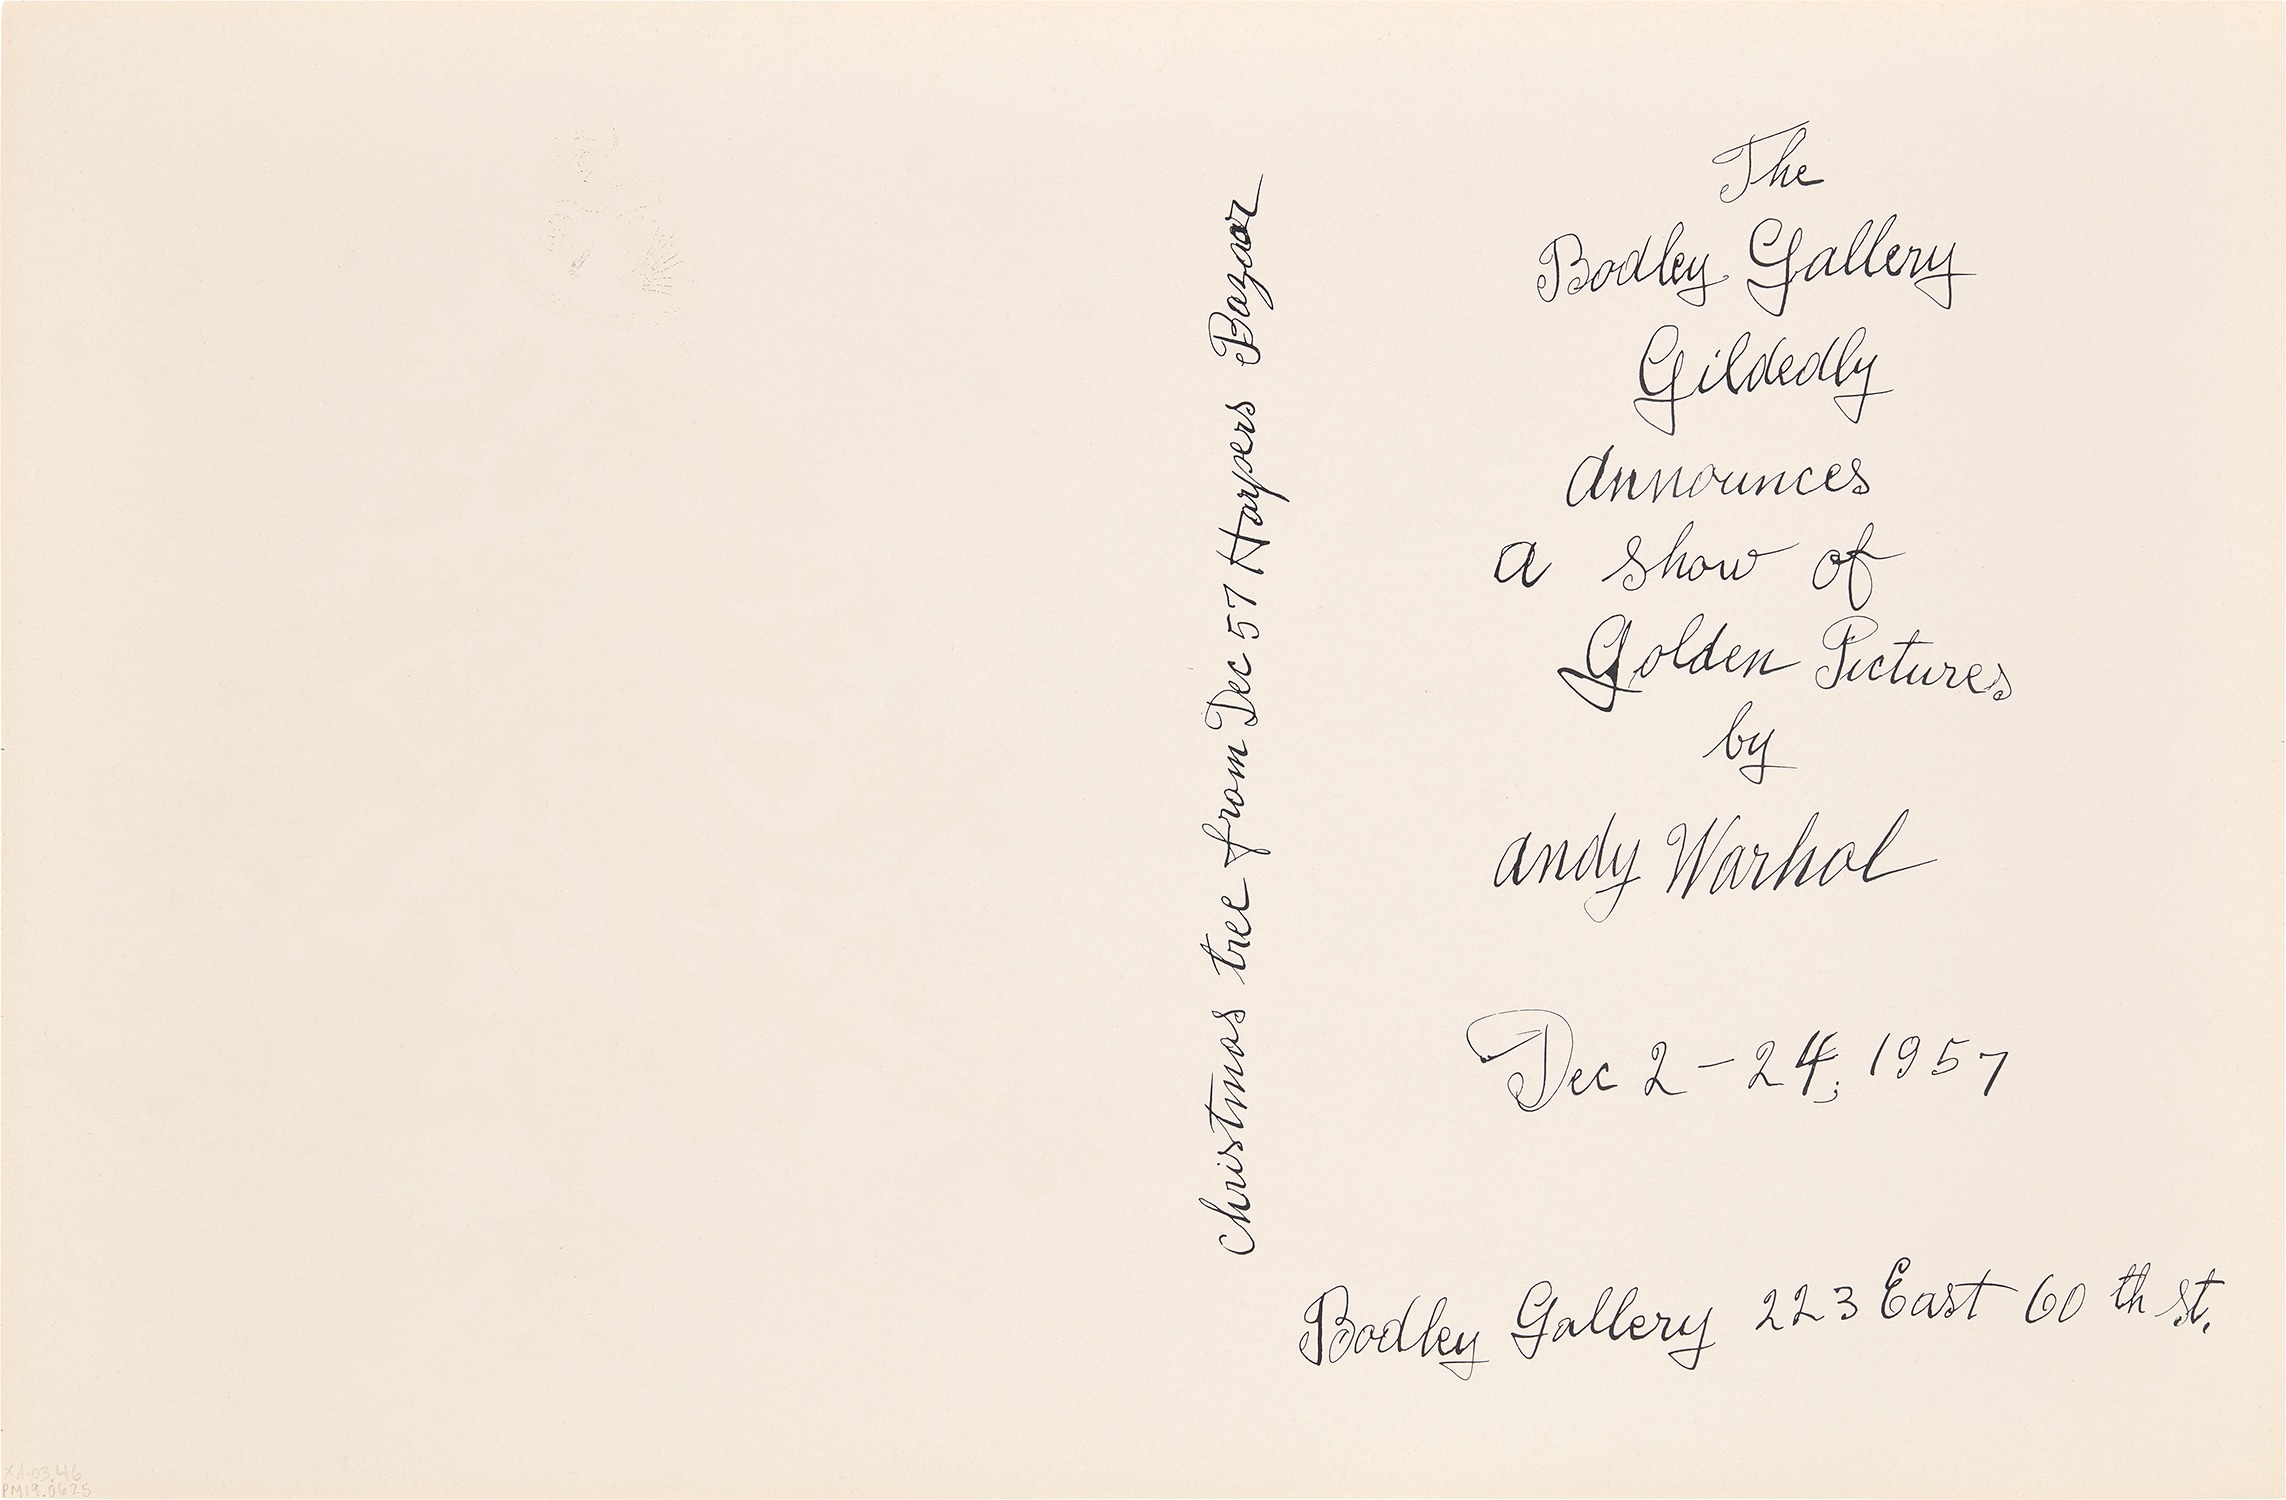 Christmas tree from Dec 57 Harpers Bazaar
The
Bodley Gallery
Gildedly
announces
a show of
Golden Pictures
by
andy Warhol
Dec 2 - 24, 1957
Bodley Gallery 223 East 60 th st.
XA-03.46
PM19.0625